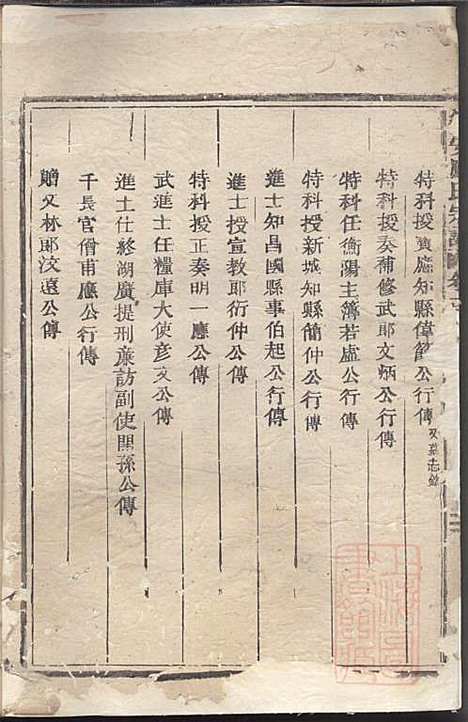 特科授黃應知縣偉節公行傳 又墓志銘
特科授奏補修武郎文炳公行傳
特科任衡陽主簿若虛公行傳
特科授新城知縣簡仲公行傳
進士知昌國縣事伯起公行傳
進士授宣教郎衍仲公傳
特科授正奏明一應公傳
武進士任糧庫大使彥文公傳
進士仕終湖廣提刑廉訪副使開孫公傳
千長官僧甫應公行傳
贈文林郎汶遠公傳